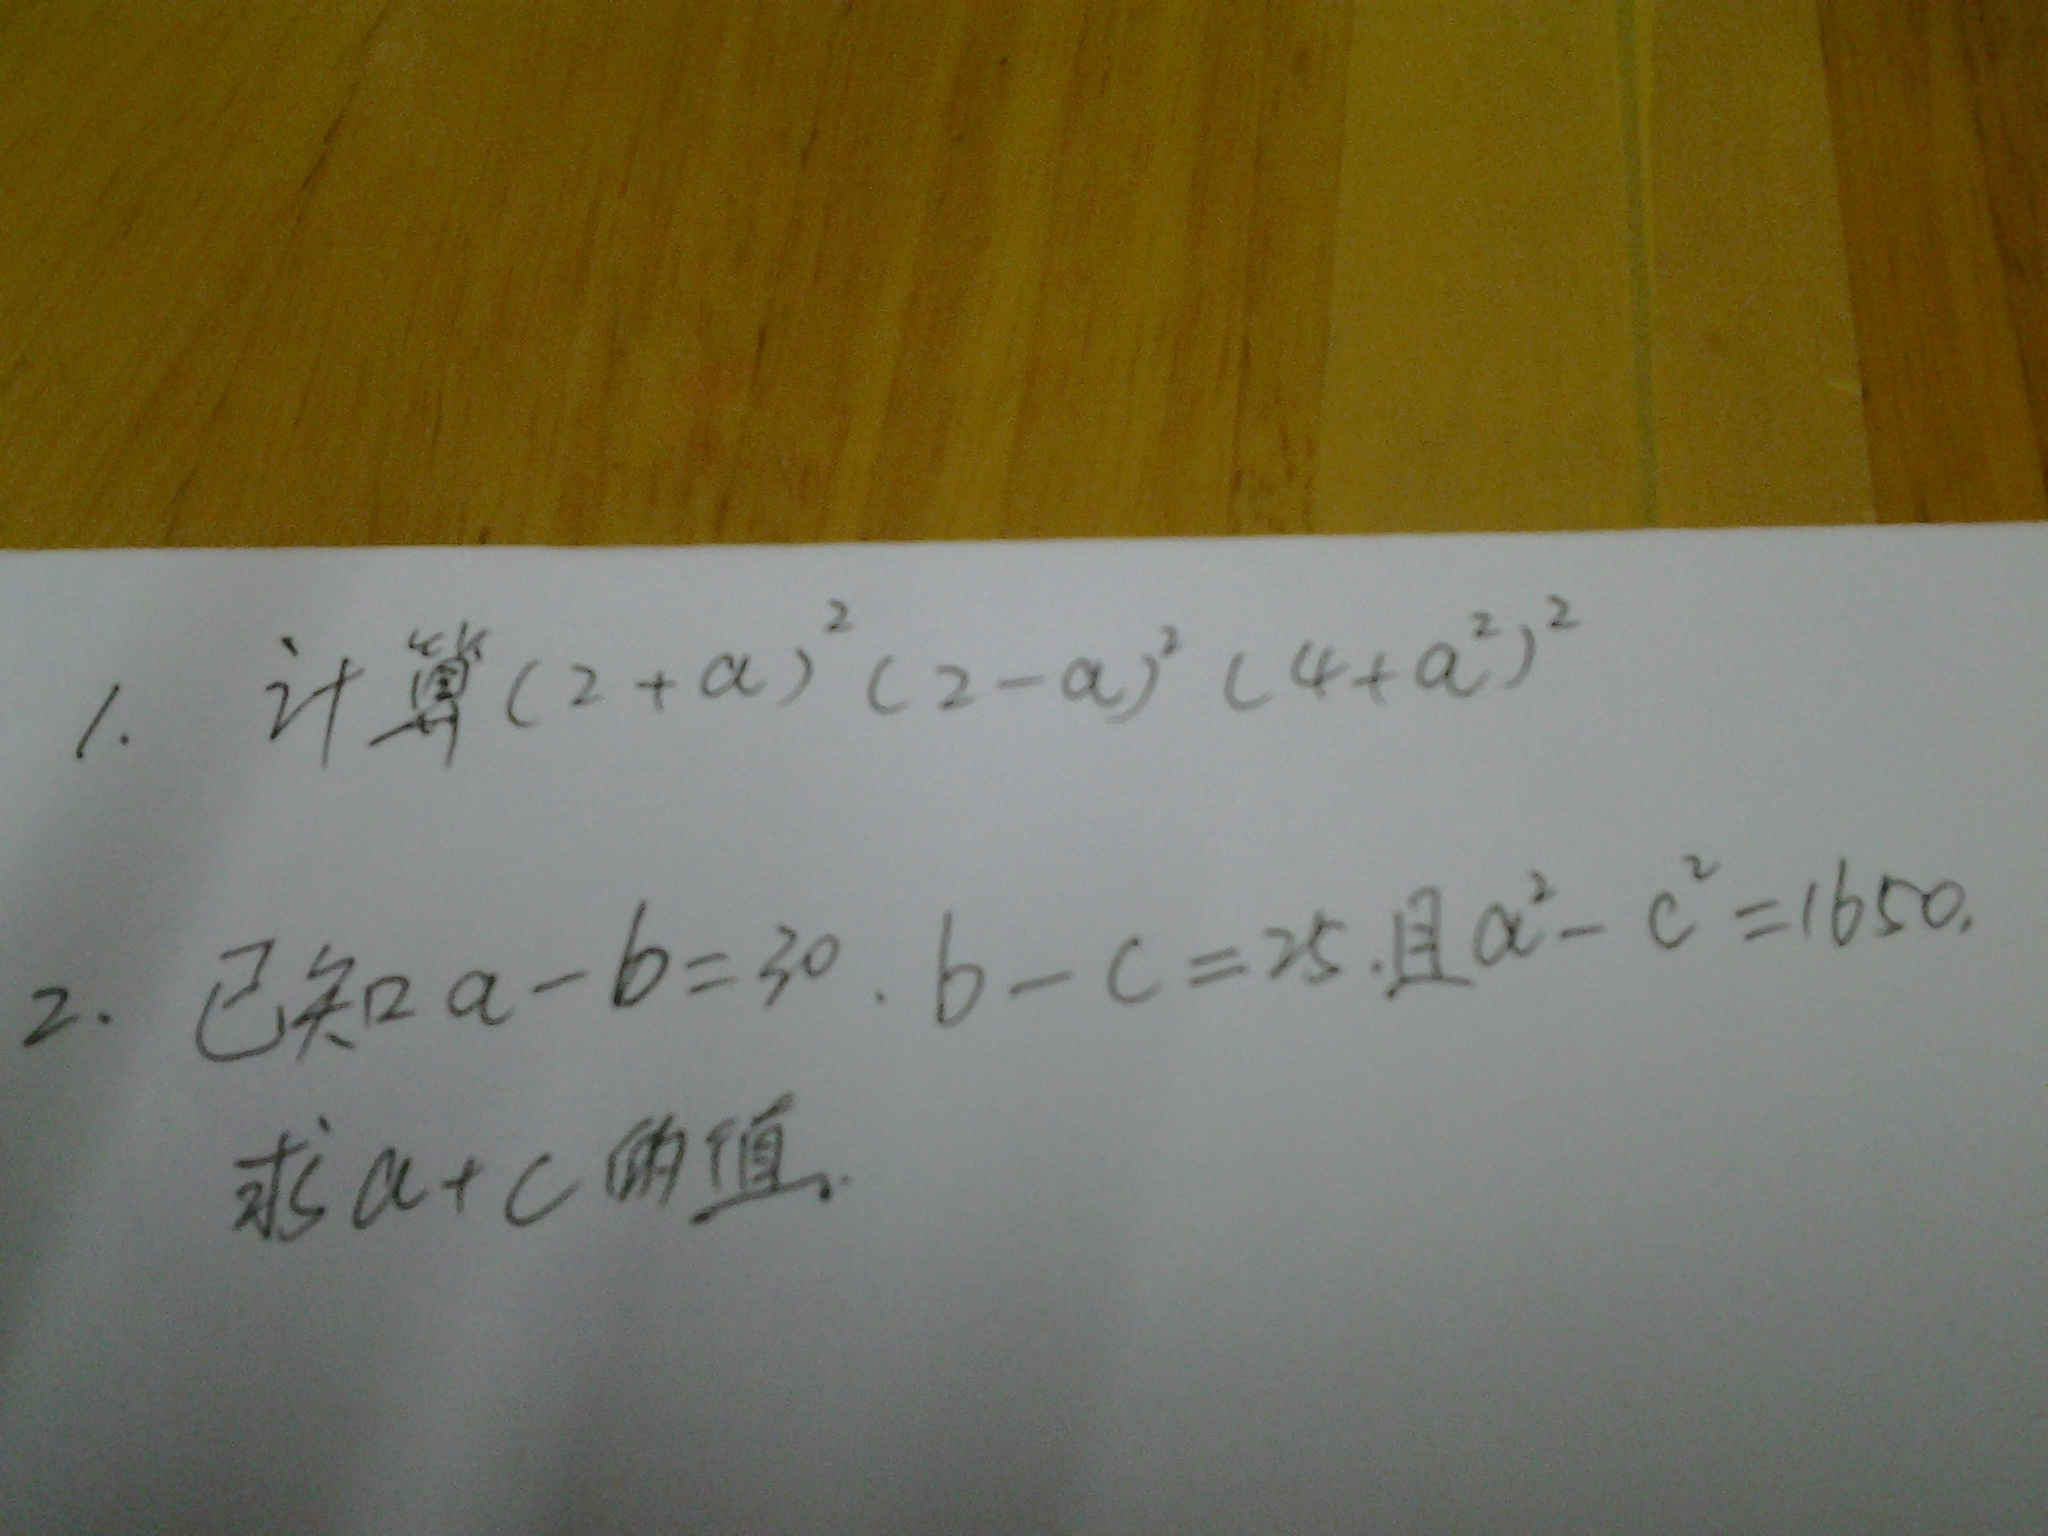 1. 计算(2+a)²(2-a)²(4+a²)²
2. 已知a-b=30.b-c=25.且a²-c²=1650.
求a+c的值.